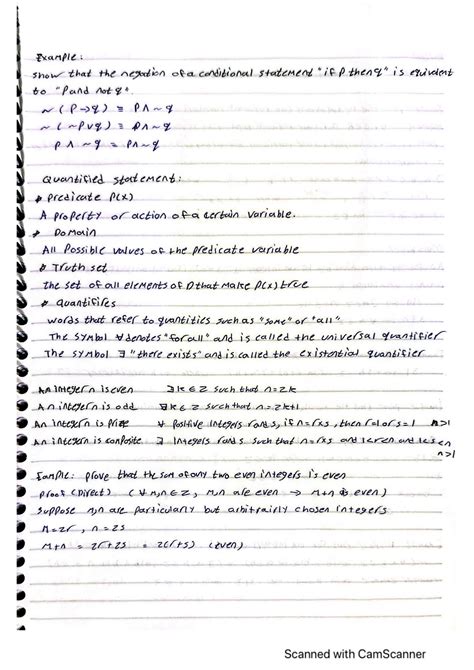 Example:
show that the negation of a conditional statement "if P then q" is equivalent
to "P and not q".
~(P→q) ≡ P∧~q
~(~P∨q) ≡ P∧~q
P∧~q = P∧~q
Quantified statement:
Predicate P(x)
A property or action of a certain variable.
Domain
All Possible values of the predicate variable
Truth set
the set of all elements of D that make P(x) true
Quantifires
words that refer to quantities such as "some" or "all".
The symbol ∀ denotes "for all" and is called the universal quantifier
The symbol ∃ "there exists" and is called the existential quantifier
An integer n is even ∃k∈Z such that n=2k
An integer n is odd ∃k∈Z such that n=2k+1
An integer n is Prime ∀ positive integers r and s, if n=rxs, then r=1 or s=1 n>1
An integer n is composite ∃ integers r and s such that n=rxs and 1<r<n and 1<s<n
n>1
Example: prove that the sum of any two even integers is even
proof (Direct) (∀ m,n∈Z, m,n are even → m+n is even)
suppose m,n are particularly but arbitrairly chosen integers
m=2r, n=2s
m+n = 2r+2s = 2(r+s) (even)
Scanned with CamScanner